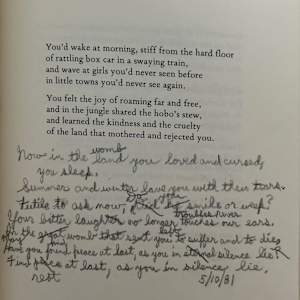 You'd wake at morning, stiff from the hard floor
of rattling box car in a swaying train,
and wave at girls you'd never seen before
in little towns you'd never see again.
You felt the joy of roaming far and free,
and in the jungle shared the hobo's stew,
and learned the kindness and the cruelty
of the land that mothered and rejected you.
womb
Now in the land you loved and cursed,
you sleep.
Summer and winter lave you with their tears.
Futile to ask now, smile or weep?
troubles never
Your bitter laughter no longer touches our ears.
last
great womb that sent you to suffer and to die,
May
you find peace at last, as you in eternal silence lie?
Find peace at last, as you in silence, lie.
rest
5/10/81